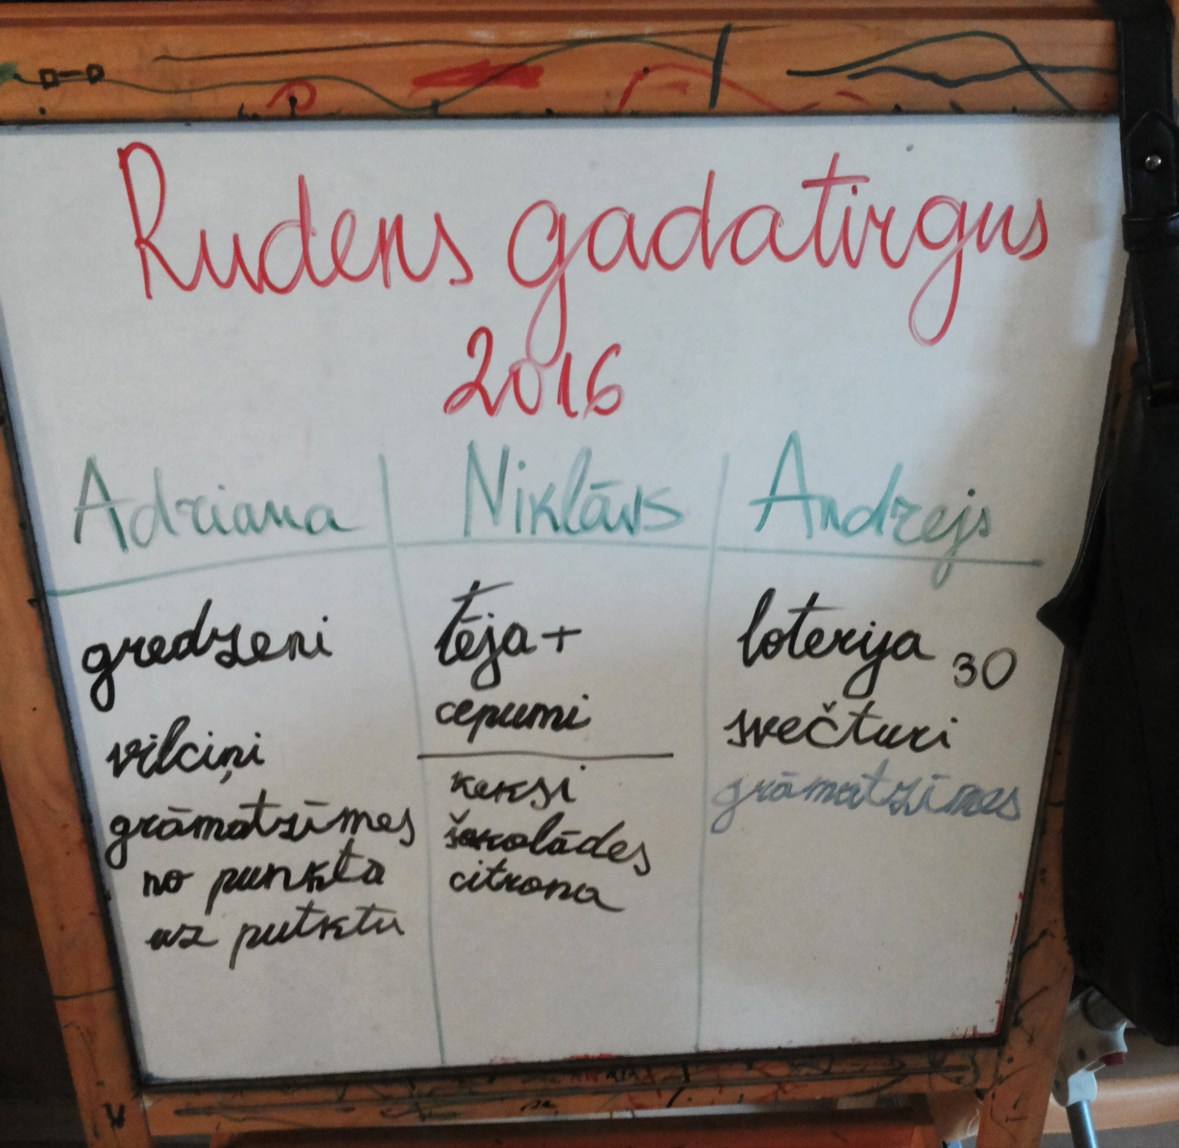 Rudens gadatirgus
2016
Adriana
gredzeni
vilciņi
grāmatzīmes
no punkta
uz putktu
Niklāvs
tēja+
cepumi
keksi
šokolādes
citrona
Andrejs
loterija 30
svečturi
grāmatzīmes